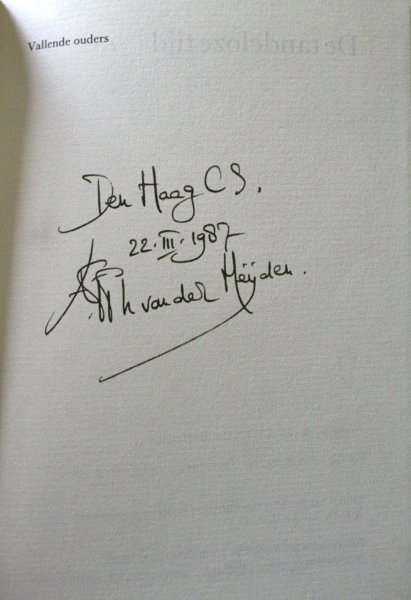 Vallende ouders
Den Haag C S.
22.III.1987
van der Meijden.